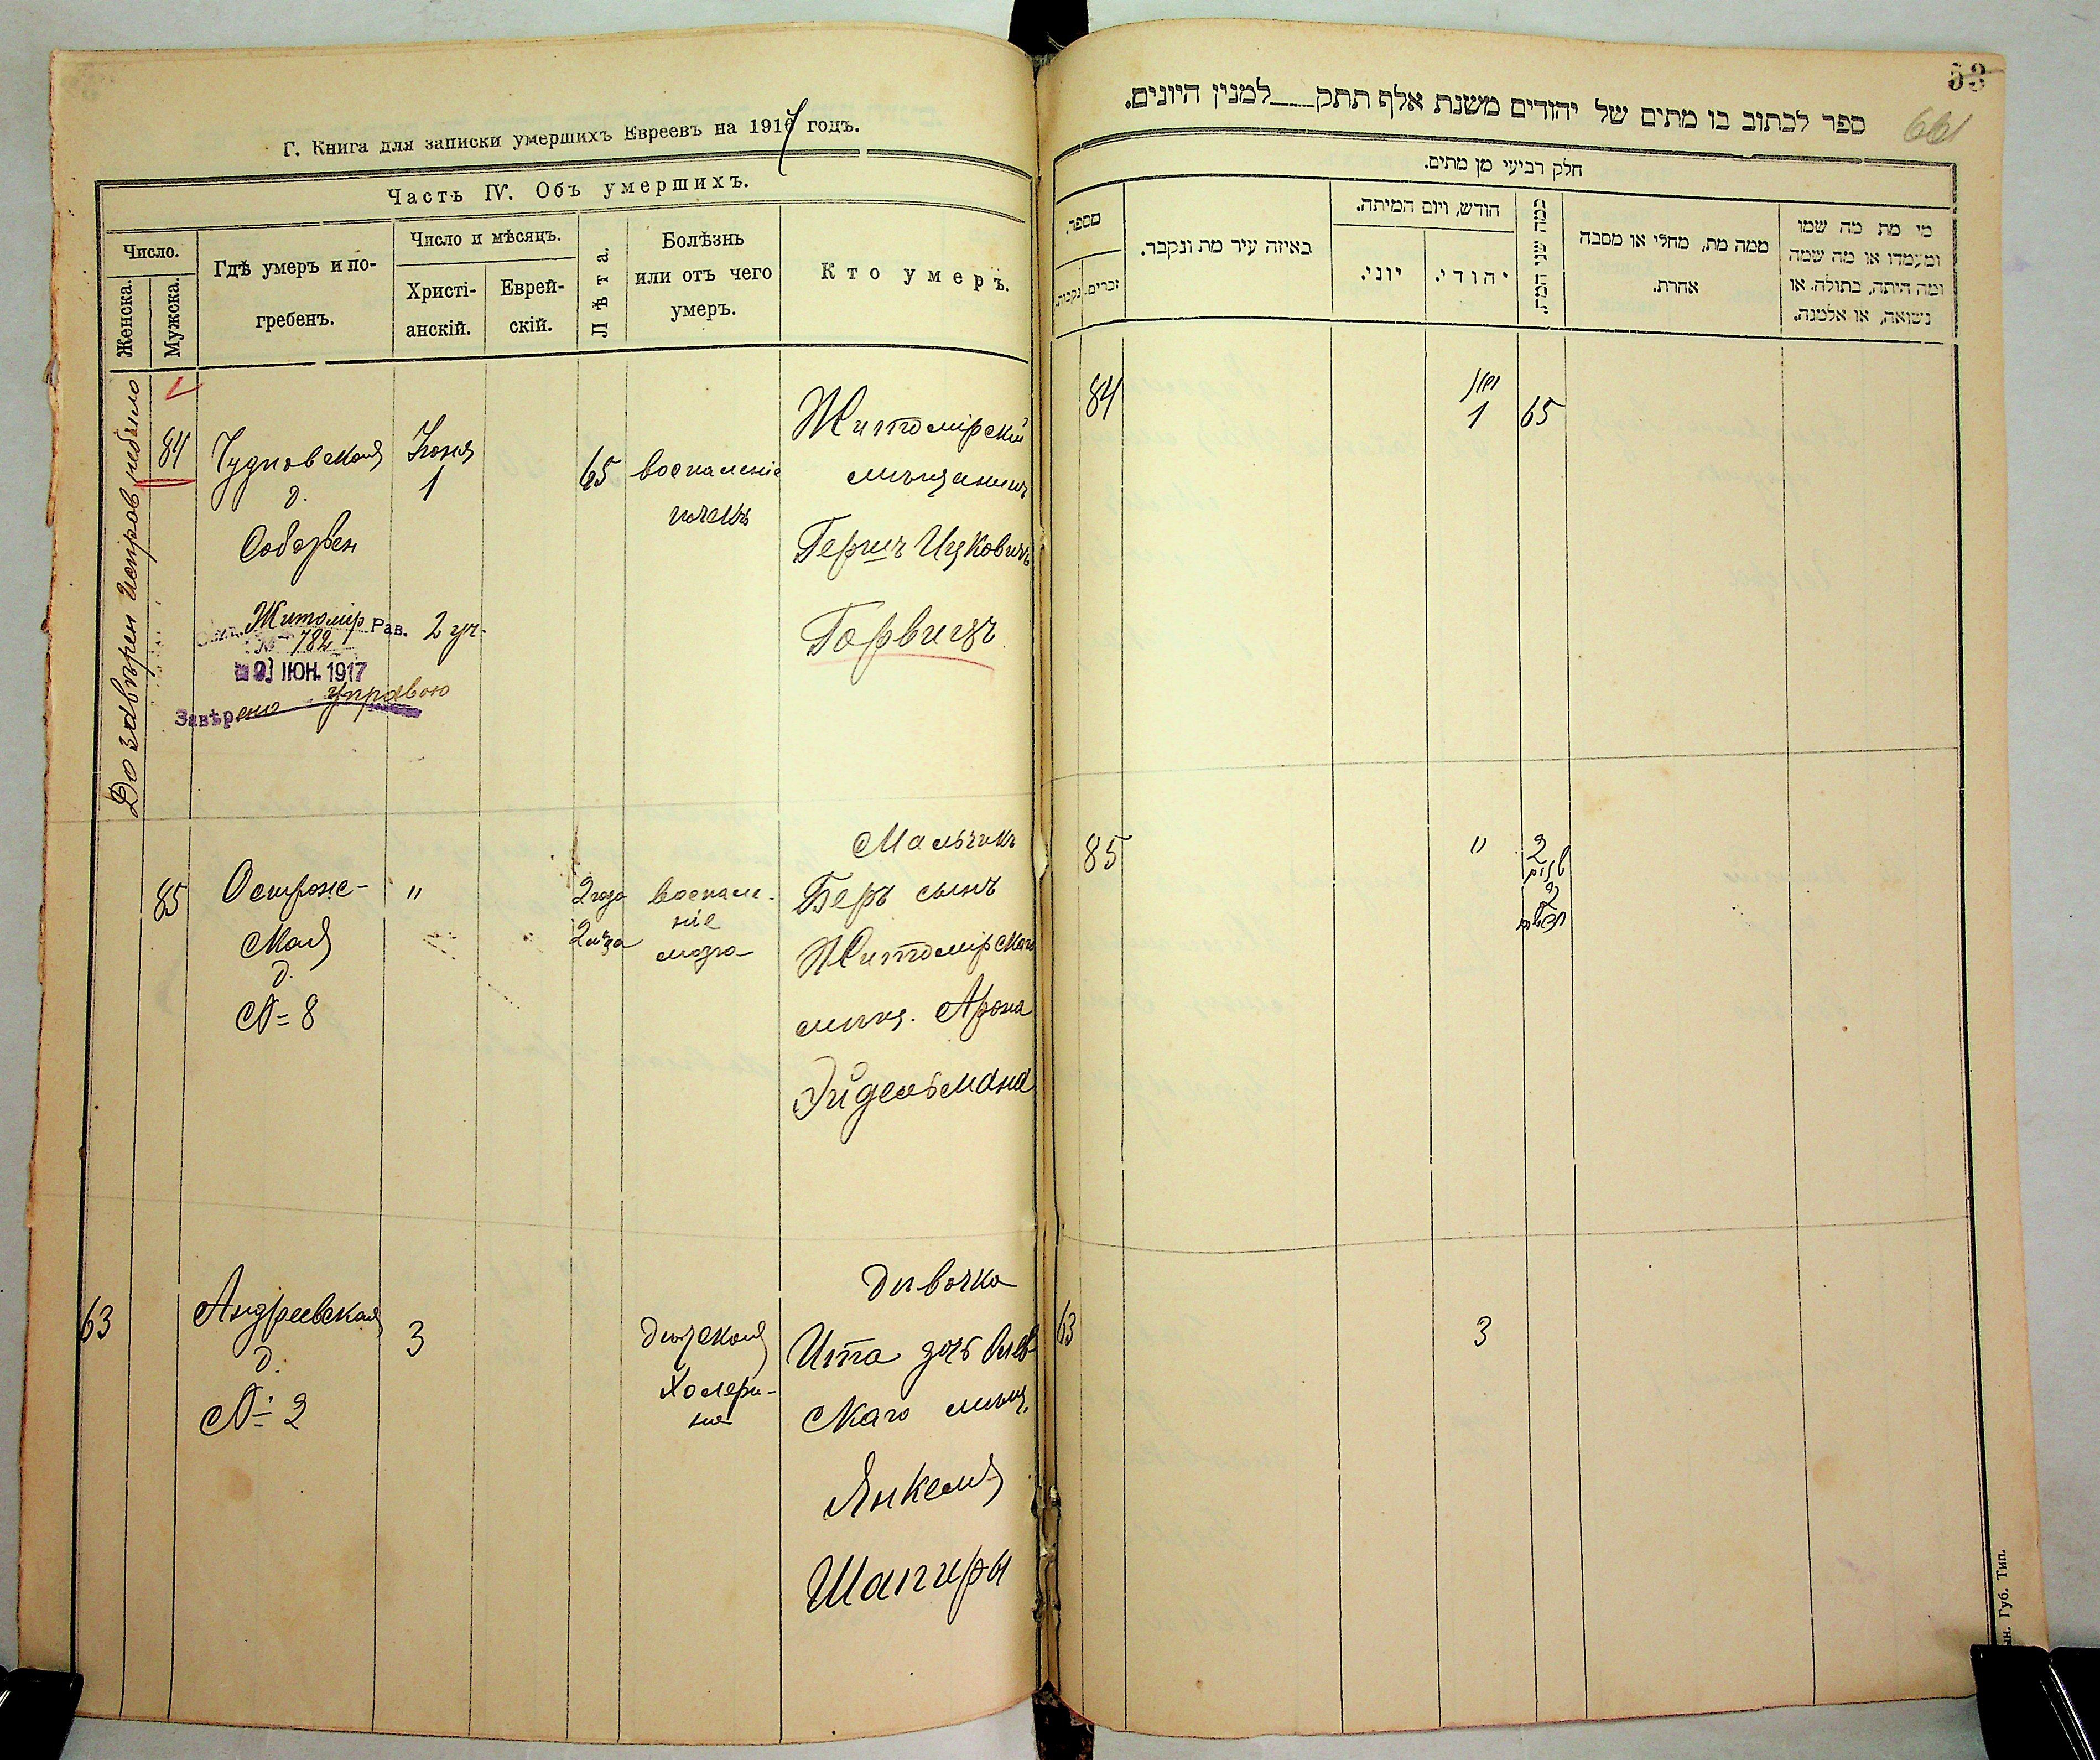 Г. Книга для записки умершихъ Евреевъ на 1917 годъ.
Часть IV. Объ умершихъ.
Число.
Женска.
Мужска.
Гдѣ умеръ и по-
гребенъ.
Число и мѣсяцъ.
Христі-
анскій.
Еврей-
скій.
Лѣта.
Болѣзнь
или отъ чего
умеръ.
Кто умеръ.
До завѣрен исправ небыло
84
Чудновская
д.
Соборен
Іюня
1
65
воспаленіе
почекъ
Житомірскій
мѣщанинъ
Гершъ Ицковичъ
Горвицъ
Житомір Рав.
№ 782
2 уч.
ІЮН. 1917
Завѣрено управою
85
Острож-
ская
д.
№ 8
"
2 года
2 м-ца
воспале-
ніе
мозга
Мальчикъ
Беръ сынъ
Житомірскаго
мѣщ. Арона
Эйдельмана
63
Андреевская
д.
№ 2
3
Дѣтская
Холери-
на
Дѣвочка
Ита дочь Олев-
скаго мѣщ.
Янкеля
Шапиры
53
66
ספר לכתוב בו מתים של יהודים משנת אלף תתק__למנין היונים.
חלק רביעי מן מתים.
מספר.
זכרים.
נקבות.
באיזה עיר מת ונקבר.
חודש, ויום המיתה.
יוני.
יהודי.
כמה שני המת.
ממה מת, מחלי או מסבה
אחרת.
מי מת מה שמו
ומעמדו או מה שמה
ומה היתה, בתולה או
נשואה, או אלמנה.
84
יוני
1
65
85
"
2
שנים
2
חדשים
63
3
Губ. Тип.